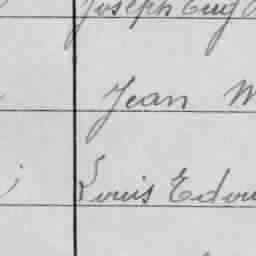 Joseph Eug
Jean M
Louis Edou